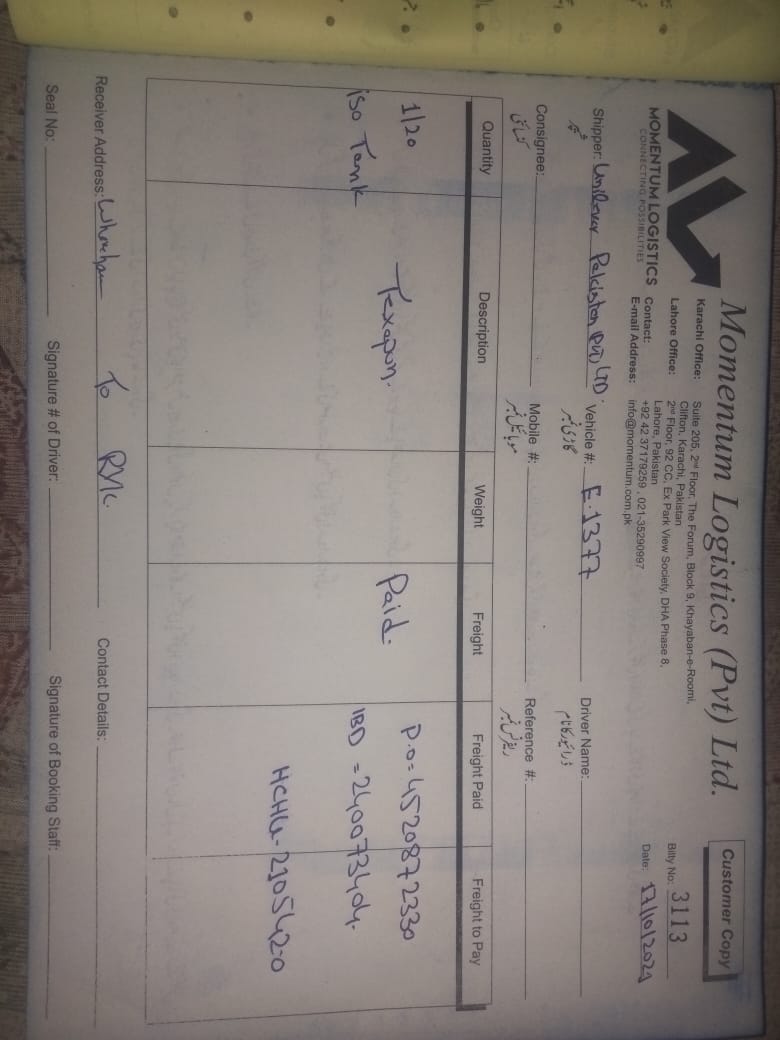 Momentum Logistics (Pvt) Ltd.
Customer Copy
MOMENTUM LOGISTICS
CONNECTING POSSIBILITIES
Karachi Office: Suite 205, 2nd Floor, The Forum, Block 9, Khayaban-e-Roomi,
Clifton, Karachi, Pakistan
Lahore Office: 2nd Floor, 92 CC, Ex Park View Society, DHA Phase 8,
Lahore, Pakistan
Contact: +92 42 37179259 , 021-35290997
E-mail Address: info@momentum.com.pk
Bilty No: 3113
Date: 17/10/2024
Shipper: Unilever Pakistan (Pvt) LTD. Vehicle #: E.1377 Driver Name:
گاڑی نمبر ڈرائیور کا نام
Consignee: Mobile #: Reference #:
موبائل نمبر ریفرنس نمبر
Quantity Description Weight Freight Freight Paid Freight to Pay
1/20 Texapon. Paid. P.O = 4520872330
iso Tank IBD = 240073404.
HCHU-210542.0
Receiver Address: To RYK. Contact Details:
Seal No: Signature # of Driver: Signature of Booking Staff: